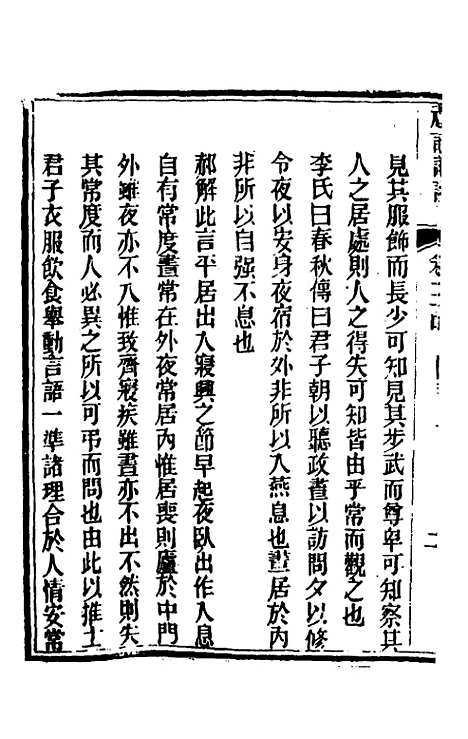 見其服飾而長少可知見其步武而尊卑可知察其
人之居處則人之得失可知皆由乎常而觀之也
李氏曰春秋傳曰君子朝以聽政晝以訪問夕以修
令夜以安身夜宿於外非所以入燕息也晝居於內
非所以自强不息也
郝解此言平居出入寢興之節早起夜臥出作入息
自有常度晝常在外夜常居內惟居喪則廬於中門
外雖夜亦不入惟致齊寢疾雖晝亦不出不然則失
其常度而人必異之所以可弔而問也由此以推士
君子衣服飮食舉動言語一準諸理合於人情安常
二